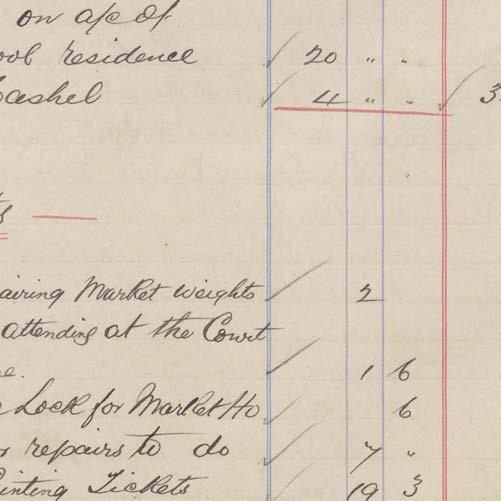 on a/c of
ool residence 20 " "
Cashel 4 " " 3
ts
airing Market weights 2
attending at the Court
e. 1 6
e Lock for Market Ho 6
r repairs to do 7 "
rinting Tickets 19 3